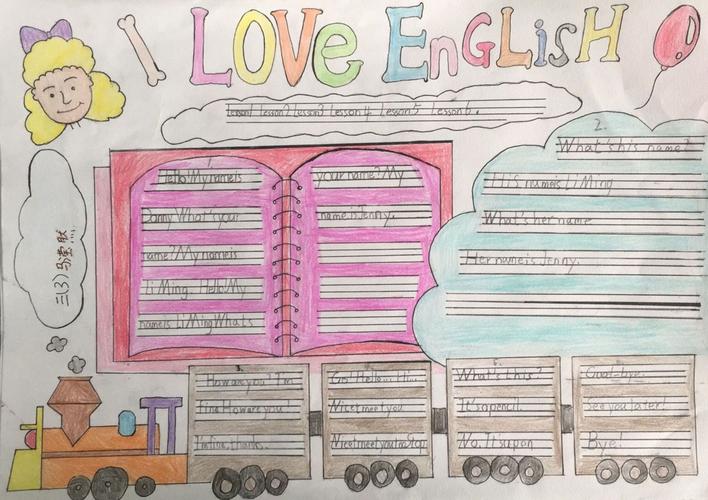 I LOVE ENGLisH
Lesson1 Lesson2 Lesson3 Lesson4 Lesson5 Lesson6.
三(3)
1
Hello! My name is
Danny. What's your
name? My name is
Li Ming. Hello! My
name is Li Ming What's
your name? My
name is Jenny.
2.
What's his name?
His name is Li Ming
What's her name
Her name is Jenny.
3.
How are you? I'm
fine How are you!
I'm fine, thanks.
Go! Hello... Hi...
Nice t meet you
Nice t meet you too Stop
What's this?
It's a pencil.
No. It's a pan
Good-bye.
See you later!
Bye!